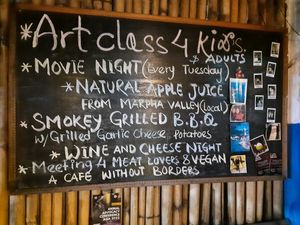 *Art class 4 kids.
& ADULTS
*MOVIE NIGHT (Every Tuesday)
*NATURAL APPLE JUICE
FROM MARPHA VALLEY (local)
*SMOKEY GRILLED B.B.Q
w/Grilled Garlic Cheese Potatoes
*WINE AND CHEESE NIGHT
*Meeting 4 MEAT LOVERS & VEGAN
A CAFE WITHOUT BORDERS
ANNUAL
ADVOCACY
CONFERENCE